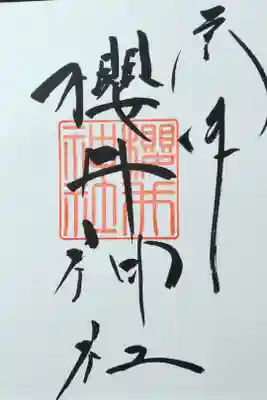 櫻井神社
櫻井
神社